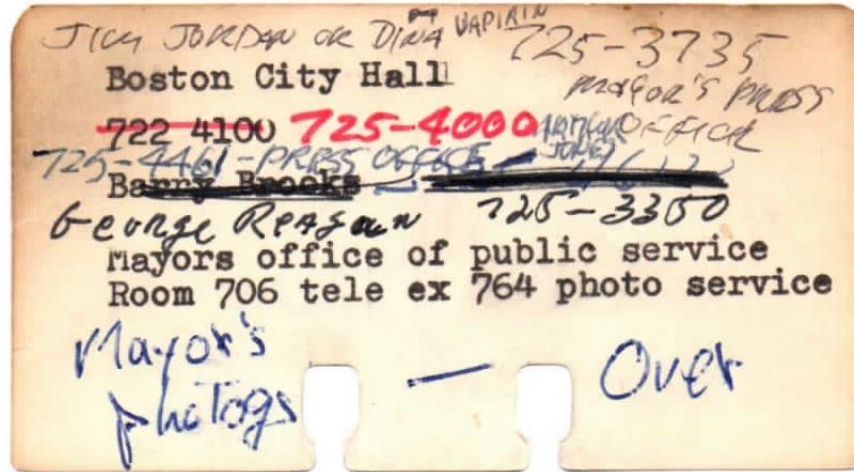 JICK JORDAN OR DINA VAPIRIN 725-3735
Boston City Hall
MAYOR'S PRESS
722 4100 725-4000 ARTHUR JONES OFFICE
725-4461-PRESS OFFICE
Barry Brooks
George REAGAN 725-3350
Mayors office of public service
Room 706 tele ex 764 photo service
Mayor's photogs — Over